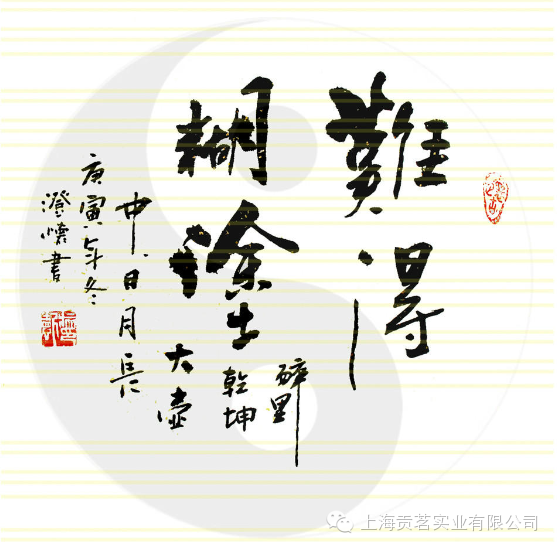 難得
糊塗
醉里
乾坤
大壺
中日月長
庚寅年冬
澄懷書
上海贡茗实业有限公司